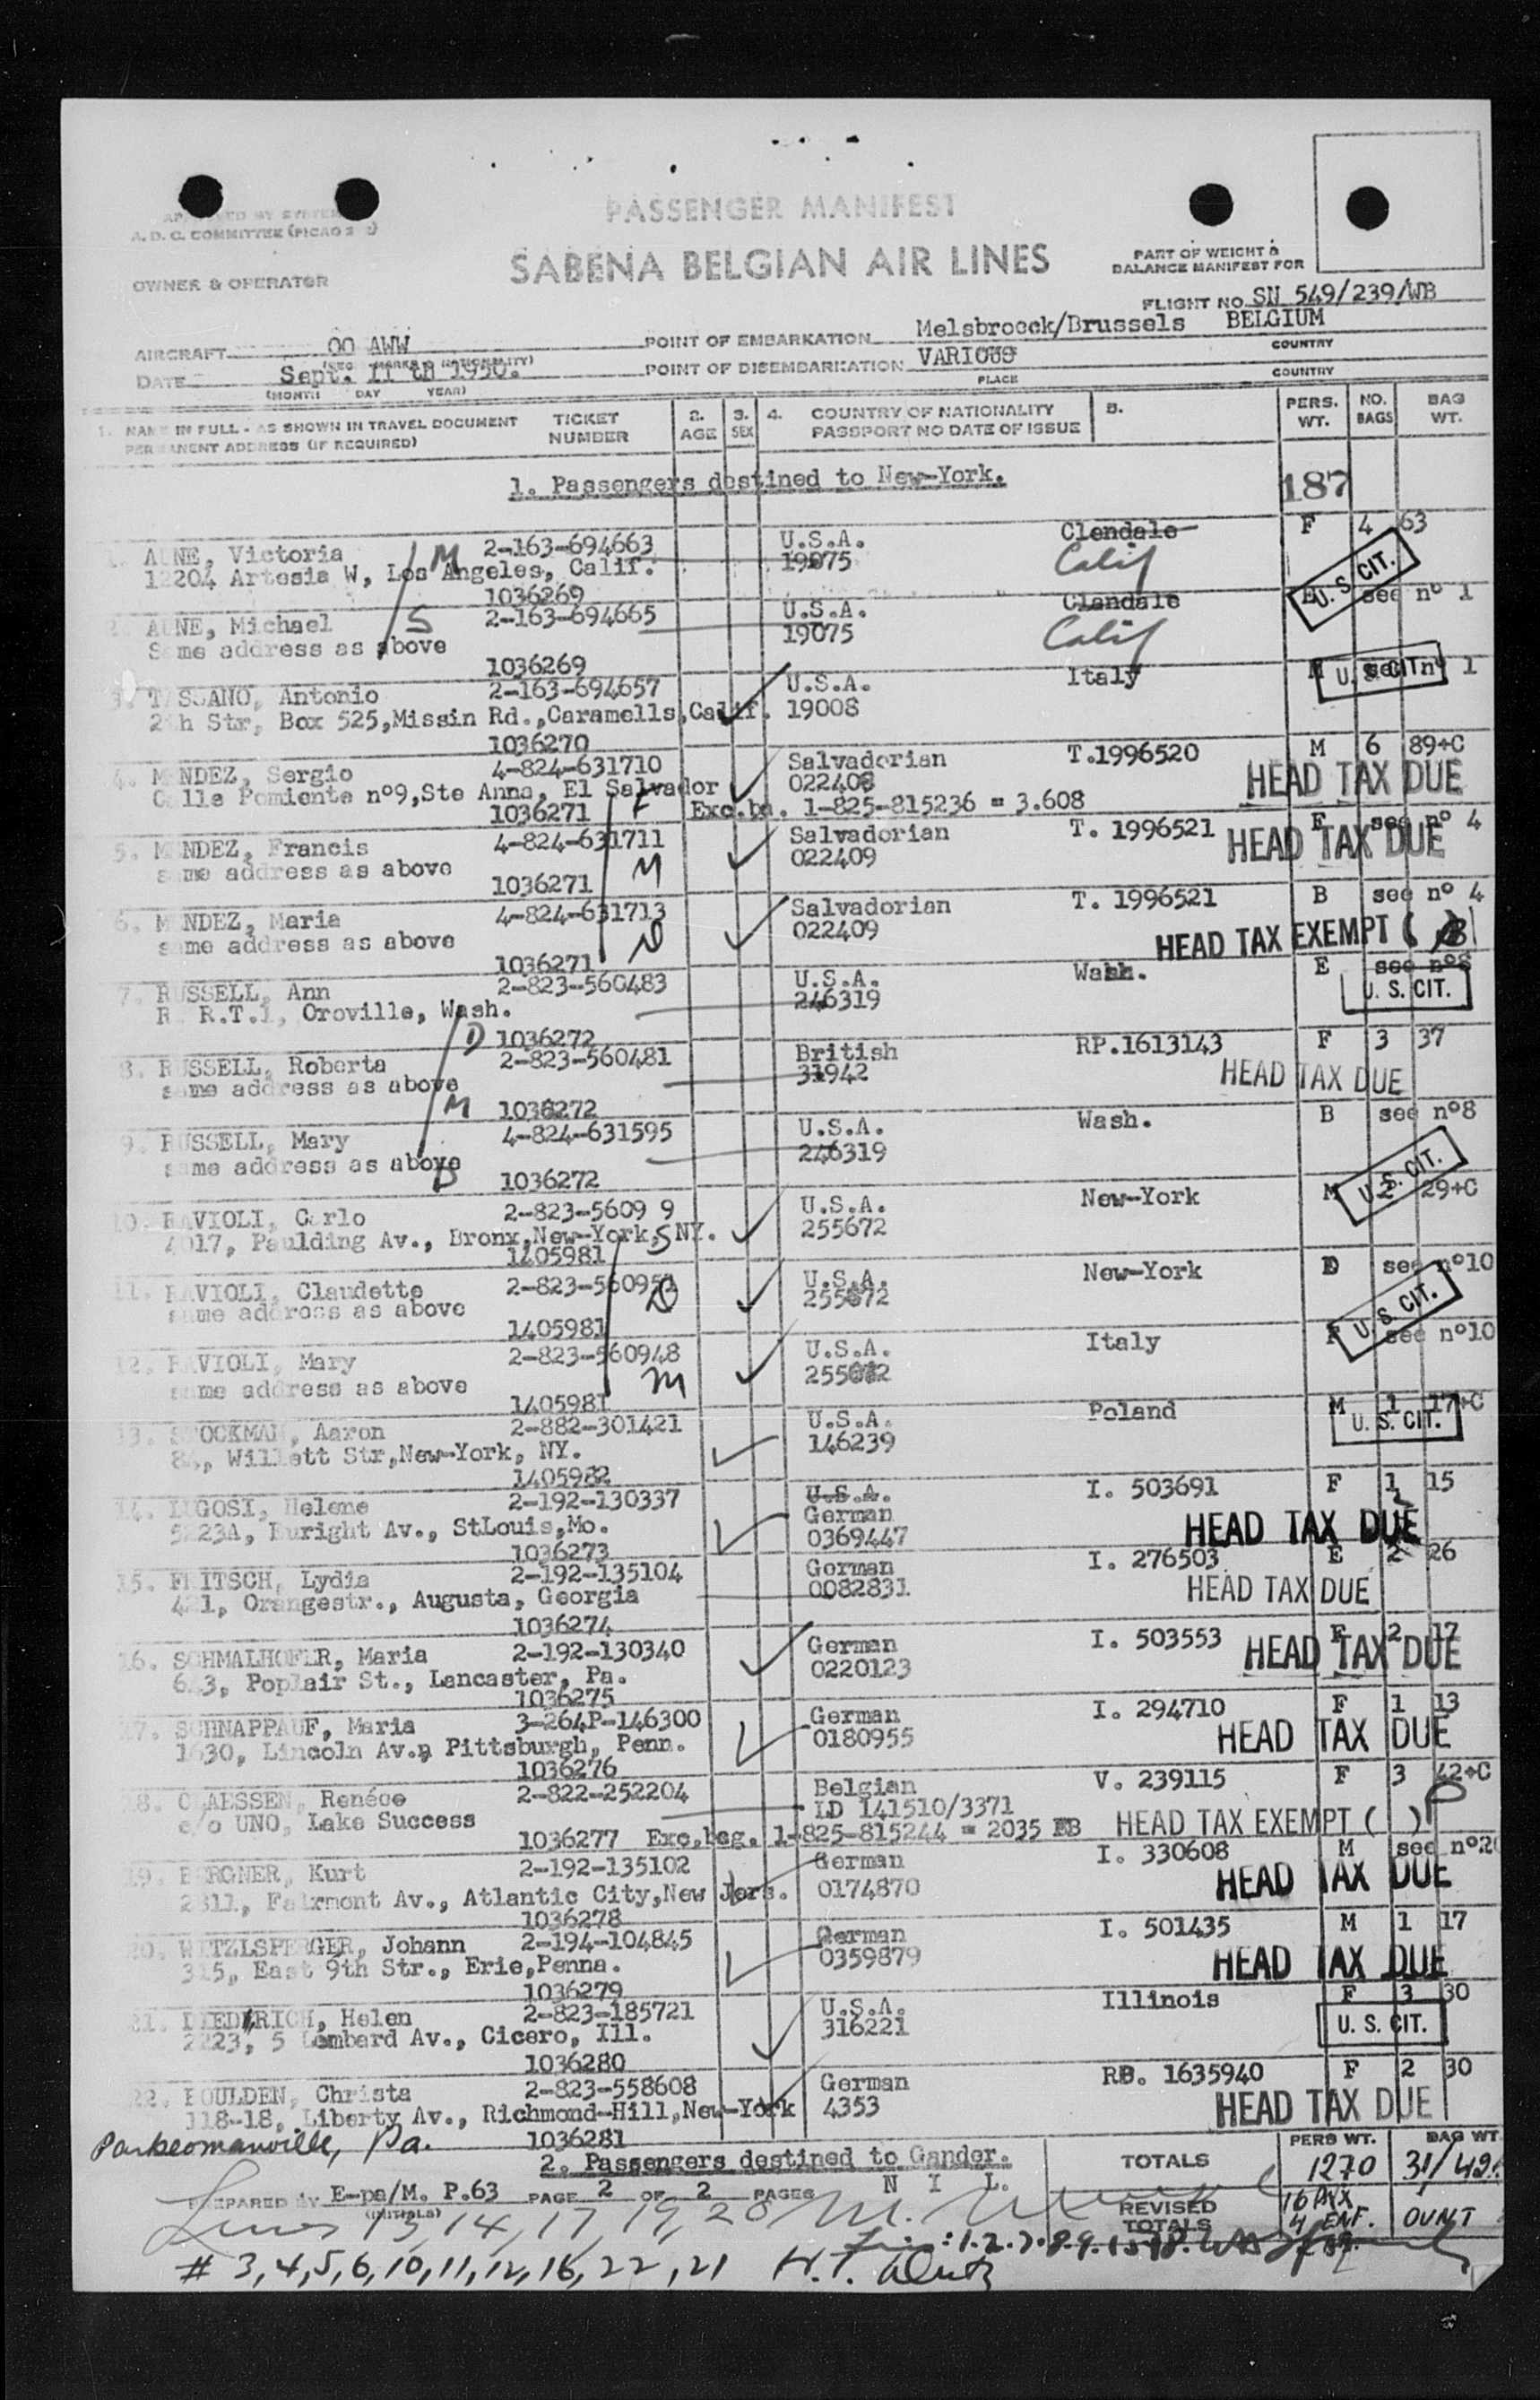 PASSENGER MANIFEST
A. D. C. COMMITTEE (PICAO
SABENA BELGIAN AIR LINES
PART OF WEIGHT &
BALANCE MANIFEST FOR
OWNER & OPERATOR
FLIGHT NO. SN 549/239/WB
AIRCRAFT OO AWW POINT OF EMBARKATION Melsbroeck/Brussels BELGIUM
COUNTRY
DATE Sept. 11 th 1950. POINT OF DISEMBARKATION VARIOUS
(MONTH DAY YEAR) PLACE COUNTRY
1. NAME IN FULL - AS SHOWN IN TRAVEL DOCUMENT TICKET 2. 3. 4. COUNTRY OF NATIONALITY 5. PERS. NO. BAG
PERMANENT ADDRESS (IF REQUIRED) NUMBER AGE SEX PASSPORT NO DATE OF ISSUE WT. BAGS WT.
1. Passengers destined to New-York. 187
1. AUNE, Victoria M 2-163-694663 U.S.A. Clendale F 4 63
12204 Artesia W, Los Angeles, Calif. 19075 Calif
1036269 U. S. CIT.
2. AUNE, Michael S 2-163-694665 U.S.A. Clendale see nº 1
Same address as above 19075 Calif
1036269
3. TASSANO, Antonio 2-163-694657 U.S.A. Italy M see nº 1
24h Str, Box 525,Missin Rd.,Caramells,Calif. 19008 U. S. CIT.
1036270
4. MENDEZ, Sergio 4-824-631710 Salvadorian T.1996520 M 6 89+C
Calle Pomiente nº9,Ste Anna, El Salvador 022408 HEAD TAX DUE
1036271 F Exc.bg. 1-825-815236 = 3.608
5. MENDEZ, Francis 4-824-631711 Salvadorian T. 1996521 F see nº 4
same address as above M 022409 HEAD TAX DUE
1036271
6. MENDEZ, Maria 4-824-631713 Salvadorian T. 1996521 B see nº 4
same address as above D 022409 HEAD TAX EXEMPT (
1036271
7. RUSSELL, Ann 2-823-560483 U.S.A. Wash. E see nº8
R. R.T.1, Oroville, Wash. 246319 U. S. CIT.
D 1036272
8. RUSSELL, Roberta 2-823-560481 British RP.1613143 F 3 37
same address as above 31942 HEAD TAX DUE
M 1036272
9. RUSSELL, Mary 4-824-631595 U.S.A. Wash. B see nº8
same address as above 246319 U. S. CIT.
D 1036272
10. RAVIOLI, Carlo 2-823-5609 9 U.S.A. New-York M 2 29+C
4017, Paulding Av., Bronx,New-York, NY. S 255672
1405981
11. RAVIOLI, Claudette 2-823-560951 U.S.A. New-York D see nº10
same address as above D 255672 U. S. CIT.
1405981
12. RAVIOLI, Mary 2-823-560948 U.S.A. Italy F see nº10
same address as above M 255672
1405981
13. STOCKMAN, Aaron 2-882-301421 U.S.A. Poland M 1 17+C
84, Willett Str,New-York, NY. 146239 U. S. CIT.
1405982
14. LUGOSI, Helene 2-192-130337 U.S.A. I. 503691 F 1 15
5223A, Enright Av., StLouis,Mo. German HEAD TAX DUE
1036273 0369447
15. FRITSCH, Lydia 2-192-135104 German I. 276503 E 2 26
421, Orangestr., Augusta, Georgia 0082831 HEAD TAX DUE
1036274
16. SCHMALHOFER, Maria 2-192-130340 German I. 503553 F 2 17
643, Poplair St., Lancaster, Pa. 0220123 HEAD TAX DUE
1036275
17. SCHNAPPAUF, Maria 3-264P-146300 German I. 294710 F 1 13
1630, Lincoln Av., Pittsburgh, Penn. 0180955 HEAD TAX DUE
1036276
18. CLAESSEN, Renéee 2-822-252204 Belgian V. 239115 F 3 42+C
c/o UNO, Lake Success LD 141510/3371 HEAD TAX EXEMPT ( )
1036277 Exc.bag. 1-825-815244 = 2035 FB
19. BERGNER, Kurt 2-192-135102 German I. 330608 M see nº20
2311, Fairmont Av., Atlantic City,New Jers. 0174870 HEAD TAX DUE
1036278
20. WITZLSPERGER, Johann 2-194-104845 German I. 501435 M 1 17
315, East 9th Str., Erie,Penna. 0359879 HEAD TAX DUE
1036279
21. DIEDRICH, Helen 2-823-185721 U.S.A. Illinois F 3 30
2223, 5 Lombard Av., Cicero, Ill. 316221 U. S. CIT.
1036280
22. BOULDEN, Christa 2-823-558608 German RB. 1635940 F 2 30
118-18, Liberty Av., Richmond-Hill,New-York 4353 HEAD TAX DUE
Parkeomanville, Pa. 1036281
2. Passengers destined to Gander. TOTALS PERS WT. BAG WT.
N I L. 1270 31/421
PREPARED BY E-pa/M. P.63 PAGE 2 OF 2 PAGES REVISED TOTALS 16 PAX
(INITIALS) 4 ENF.
Lines 13, 14, 17, 19, 20
# 3,4,5,6,10,11,12,16,22,21